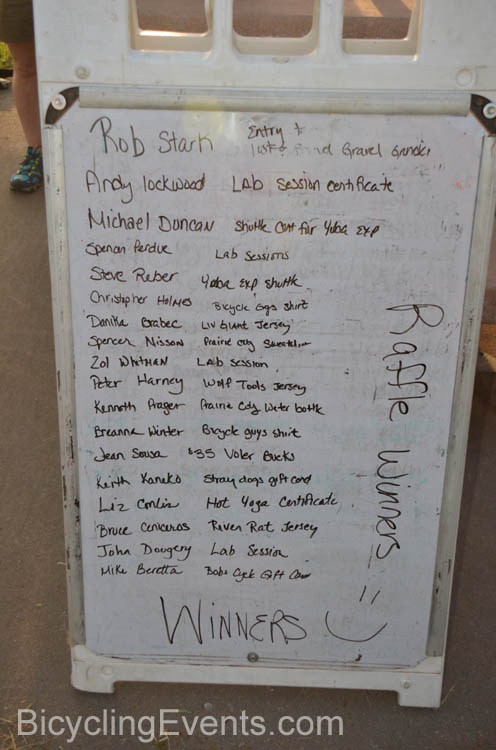 Rob Stark Entry &
Gravel Grinder
Andy lockwood LAb Session certificate
Michael Duncan Shuttle Cert for Yuba Exp
Spencer Perdue Lab Sessions
Steve Reber Yuba Exp Shuttle
Christopher Holmes Bicycle Guys Shirt
Danika Grabec Liv Giant Jersey
Spencer Nisson Prairie City
Zol Whitman LAb Session
Peter Harney Wolf Tools Jersey
Kenneth Prager Prairie City Water bottle
Breanna Winter Bicycle guys Shirt
Jean Sousa $35 Voler Bucks
Keith Kaneko Stray dogs gift card
Liz Hot Yoga Certificate
Bruce Ceniceros River Rat Jersey
John Dougery Lab Session
Mike Beretta Bobs Cycle Gift
WINNERS
Raffle Winners
BicyclingEvents.com